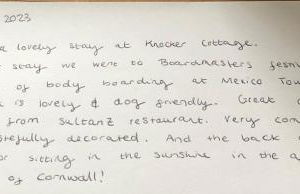 2023
a lovely stay at Knocker Cottage.
stay we went to Boardmasters
of body boarding at Mexico
is lovely & dog friendly. Great
from Sultanz restaurant. Very
decorated. And the back
sitting in the sunshine in the
of Cornwall!